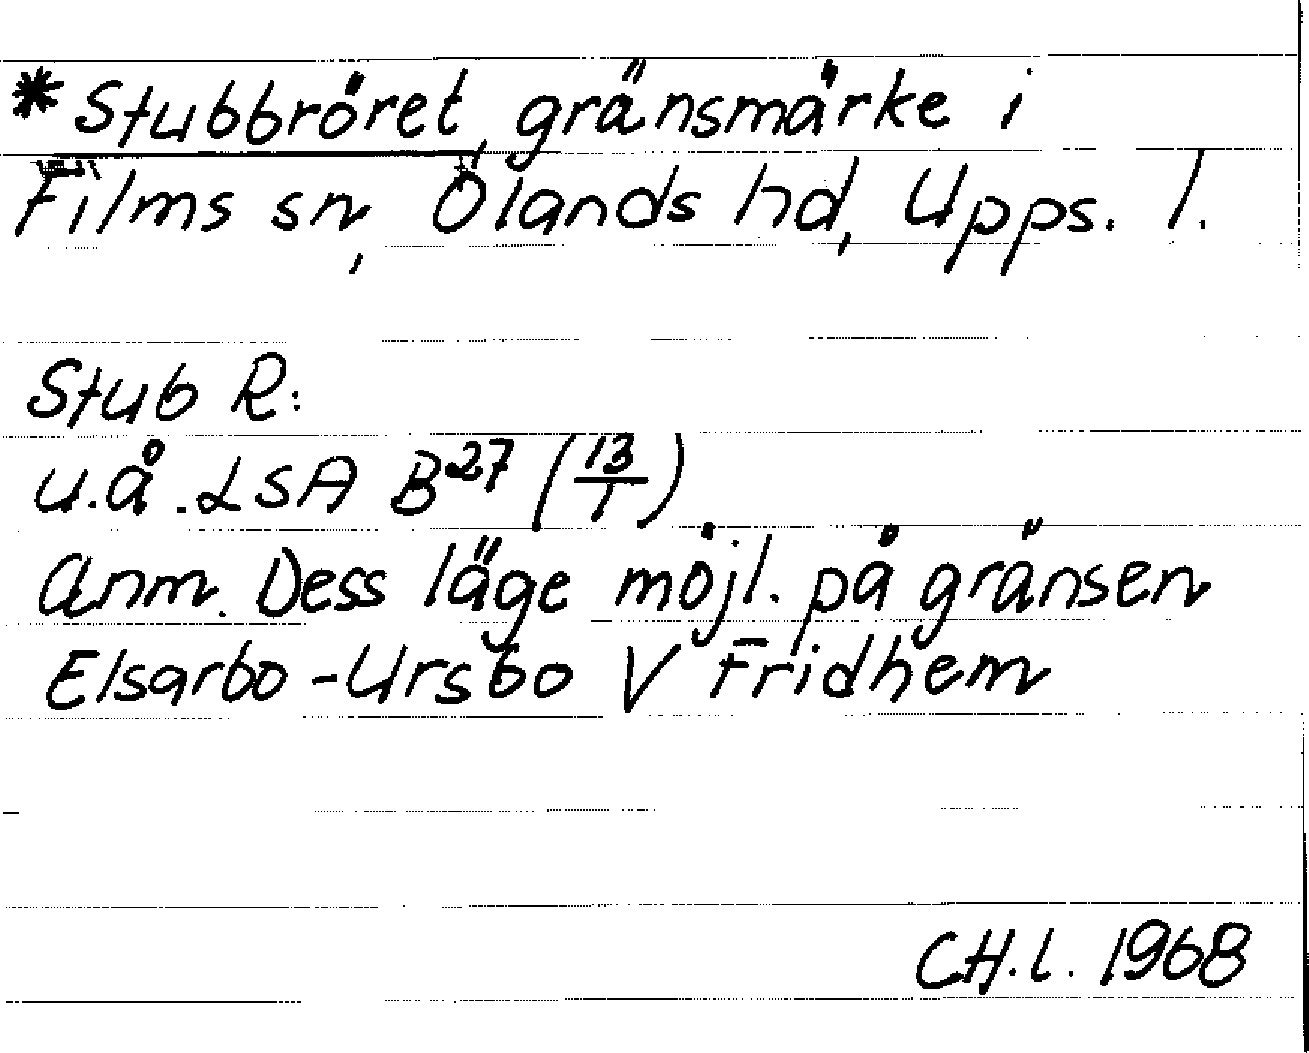 *Stubbröret, gränsmärke i
Films sn, Ölands hd, Upps. l.
Stub R:
u.å. LSA B27 (13/1)
Anm. Dess läge möjl. på gränsen
Elsarbo-Ursbo V Fridhem
CH.l. 1968